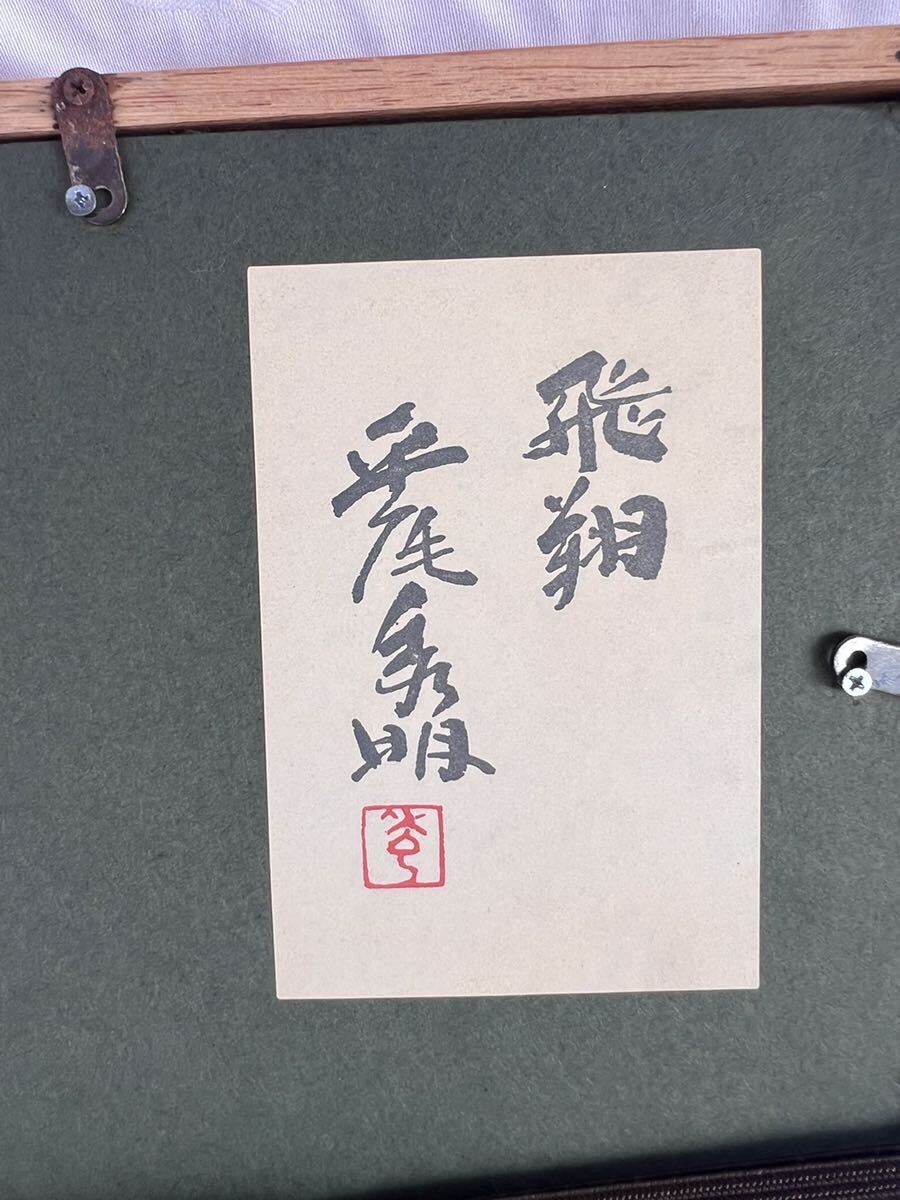 飛翔
平尾秀明